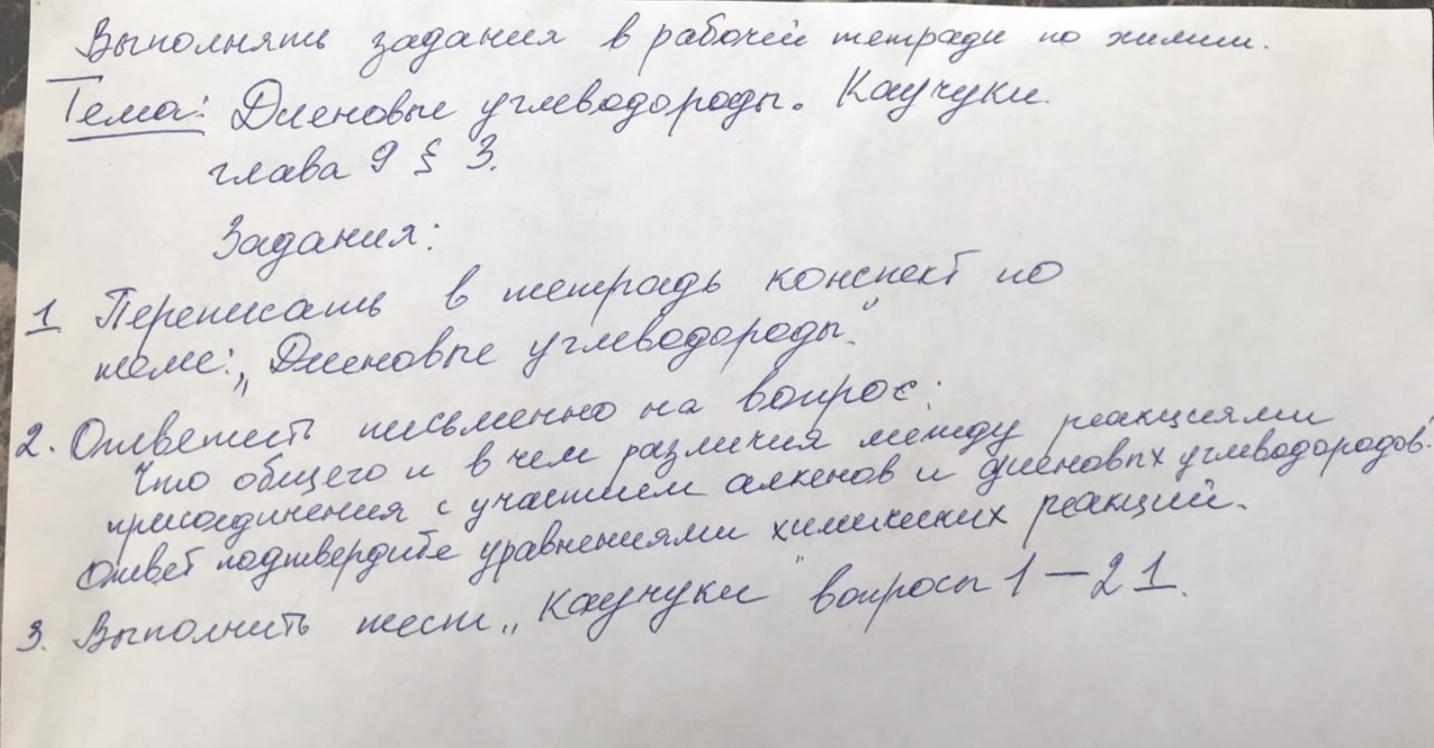 Выполнять задания в рабочей тетради по химии.
Тема: Диеновые углеводороды. Каучуки.
глава 9 § 3.
Задания:
1 Переписать в тетрадь конспект по
теме: „Диеновые углеводороды".
2. Ответить письменно на вопрос:
Что общего и в чем различия между реакциями
присоединения с участием алкенов и диеновых углеводородов.
Ответ подтвердите уравнениями химических реакций.
3. Выполнить тест „Каучуки" вопросы 1 – 21.